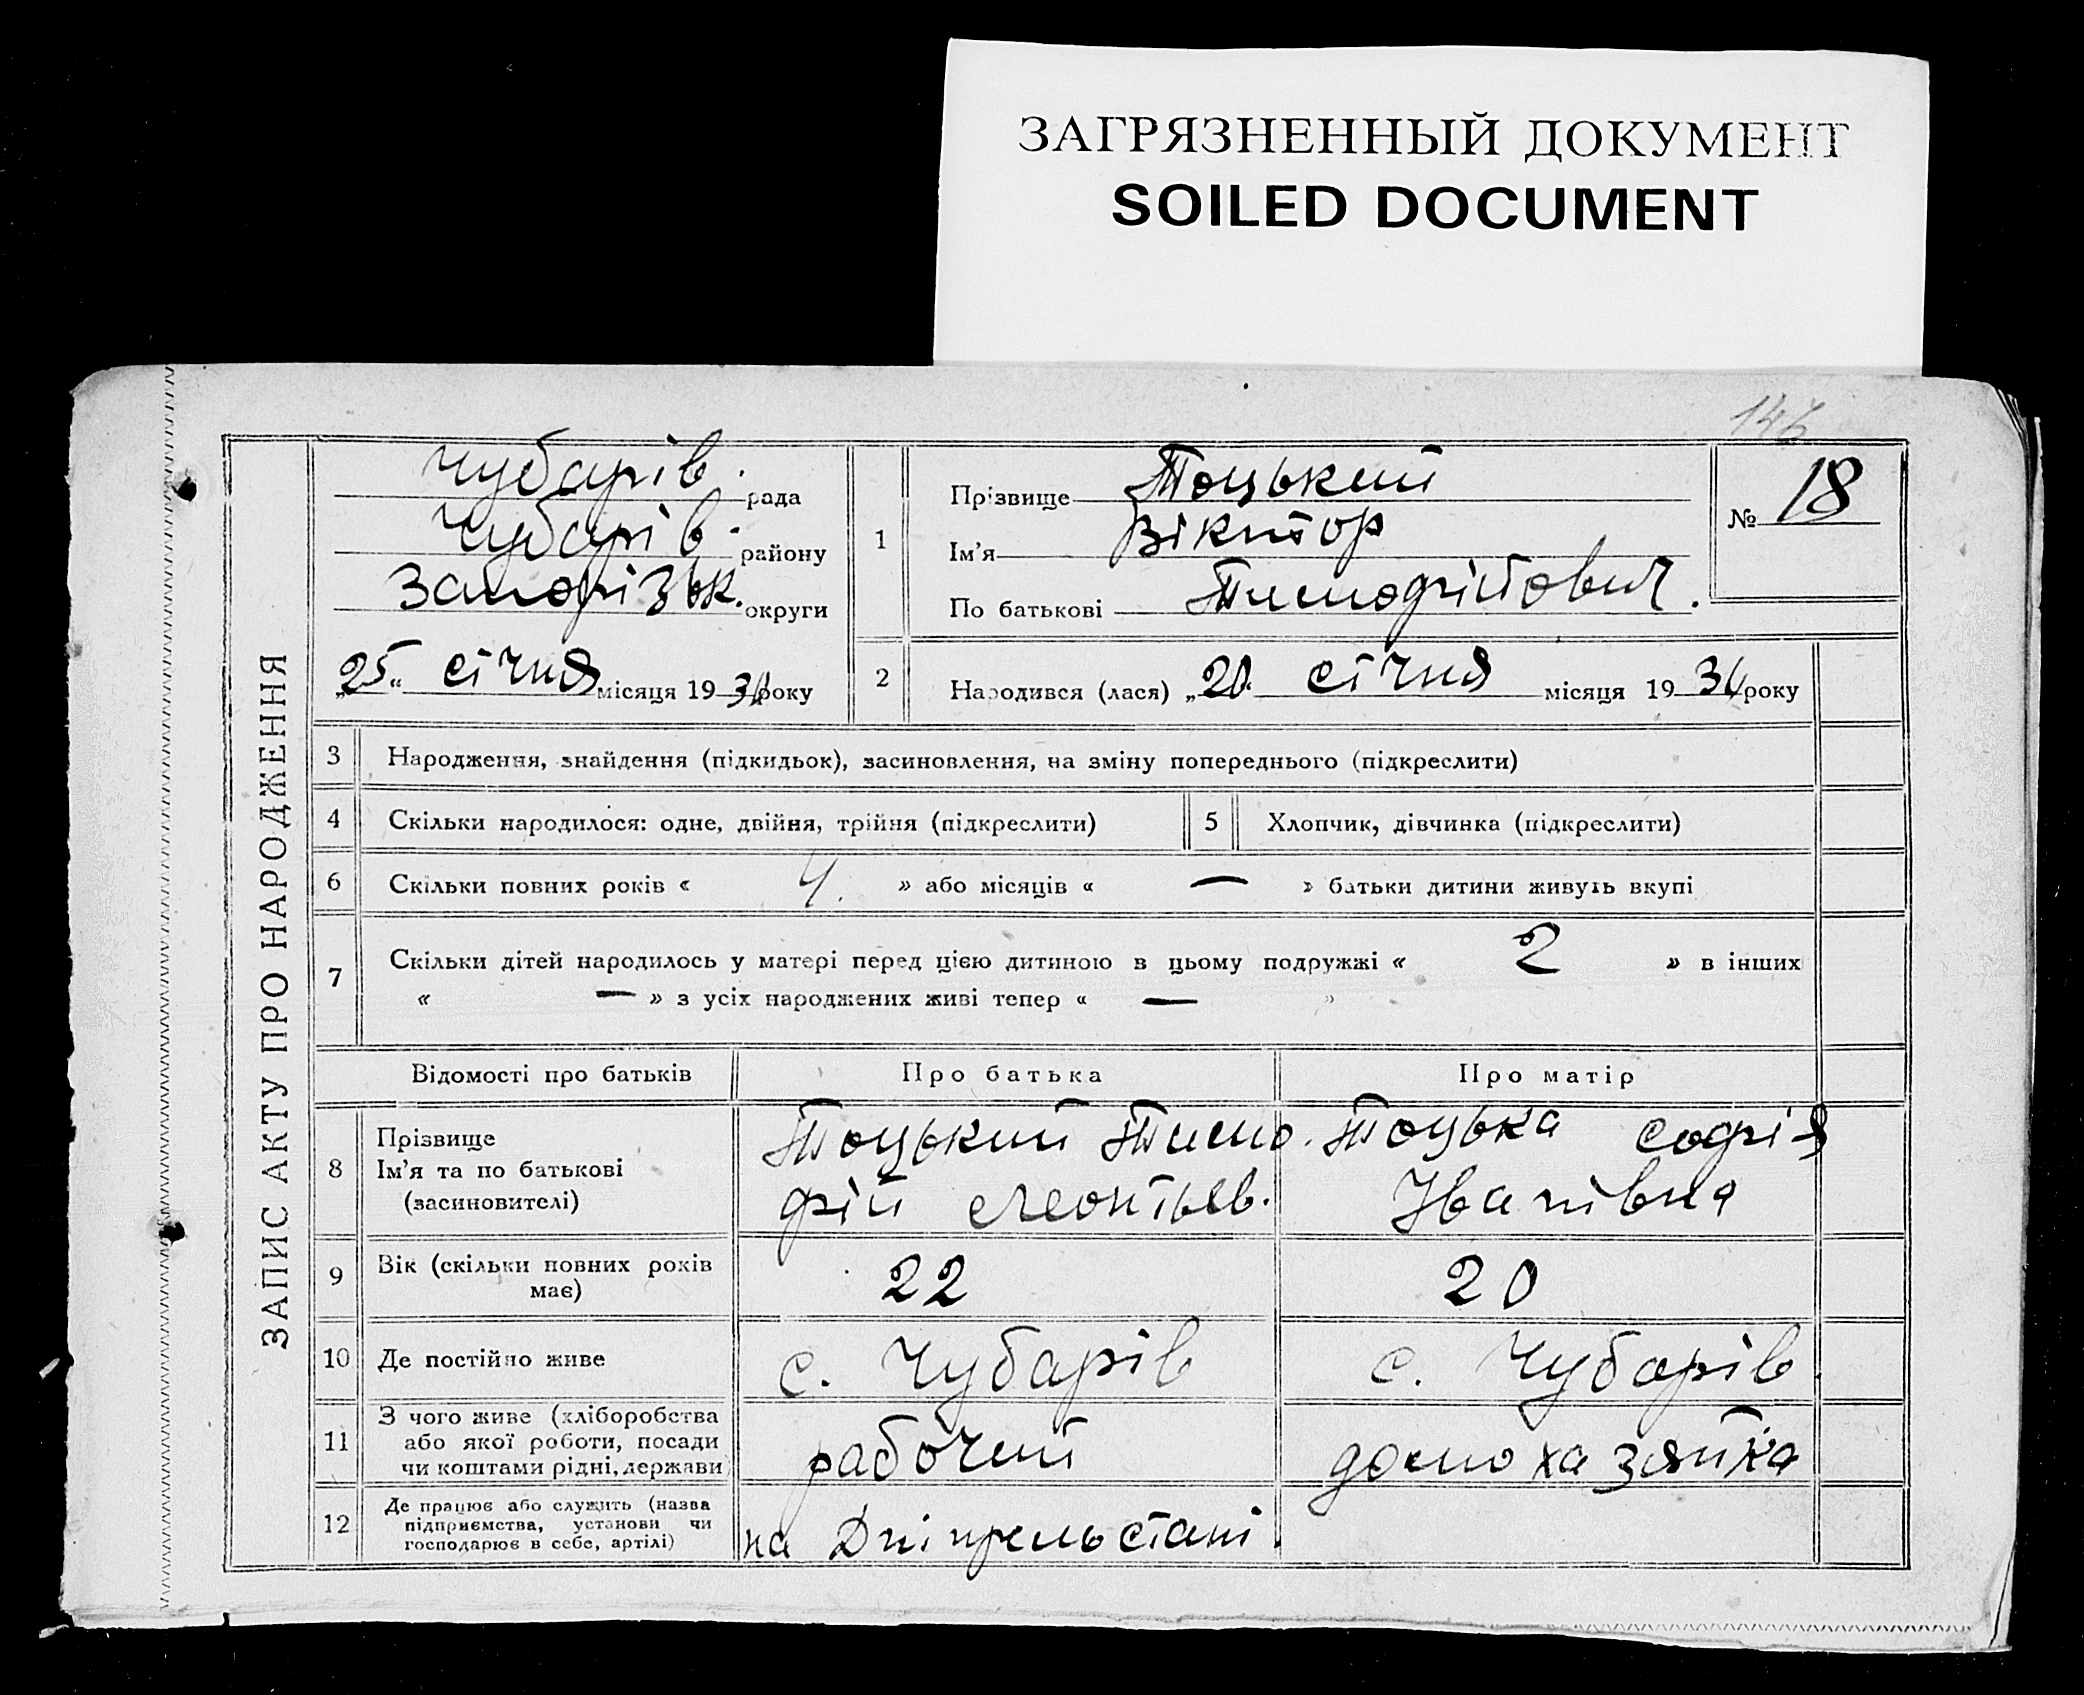 ЗАГРЯЗНЕННЫЙ ДОКУМЕНТ
SOILED DOCUMENT
146
ЗАПИС АКТУ ПРО НАРОДЖЕННЯ
Чубарів. рада
Чубарів. району
Запорізьк. округи
„25“ січня місяця 1931 року
1
Прізвище Тоцький
Ім'я Віктор
По батькові Тимофрійович.
№ 18
2
Народився (лася) „20“ січня місяця 1931 року
3 Народження, знайдення (підкидьок), засиновлення, на зміну попереднього (підкреслити)
4 Скільки народилося: одне, двійня, трійня (підкреслити) 5 Хлопчик, дівчинка (підкреслити)
6 Скільки повних років « 4. » або місяців « — » батьки дитини живуть вкупі
7 Скільки дітей народилось у матері перед цією дитиною в цьому подружжі « 2 » в інших
« — » з усіх народжених живі тепер « — »
Відомості про батьків Про батька Про матір
8 Прізвище
Ім'я та по батькові
(засиновителі)
Тоцький Тимо
фрій Леонтьев.
Тоцька Софрія
Іванівна
9 Вік (скільки повних років
має)
22 20
10 Де постійно живе с. Чубарів с. Чубарів.
11 З чого живе (хліборобства
або якої роботи, посади
чи коштами рідні, держави)
рабочий домохазяйка
12 Де працює або служить (назва
підприємства, установи чи
господарює в себе, артілі)
на Дніпрельстані.